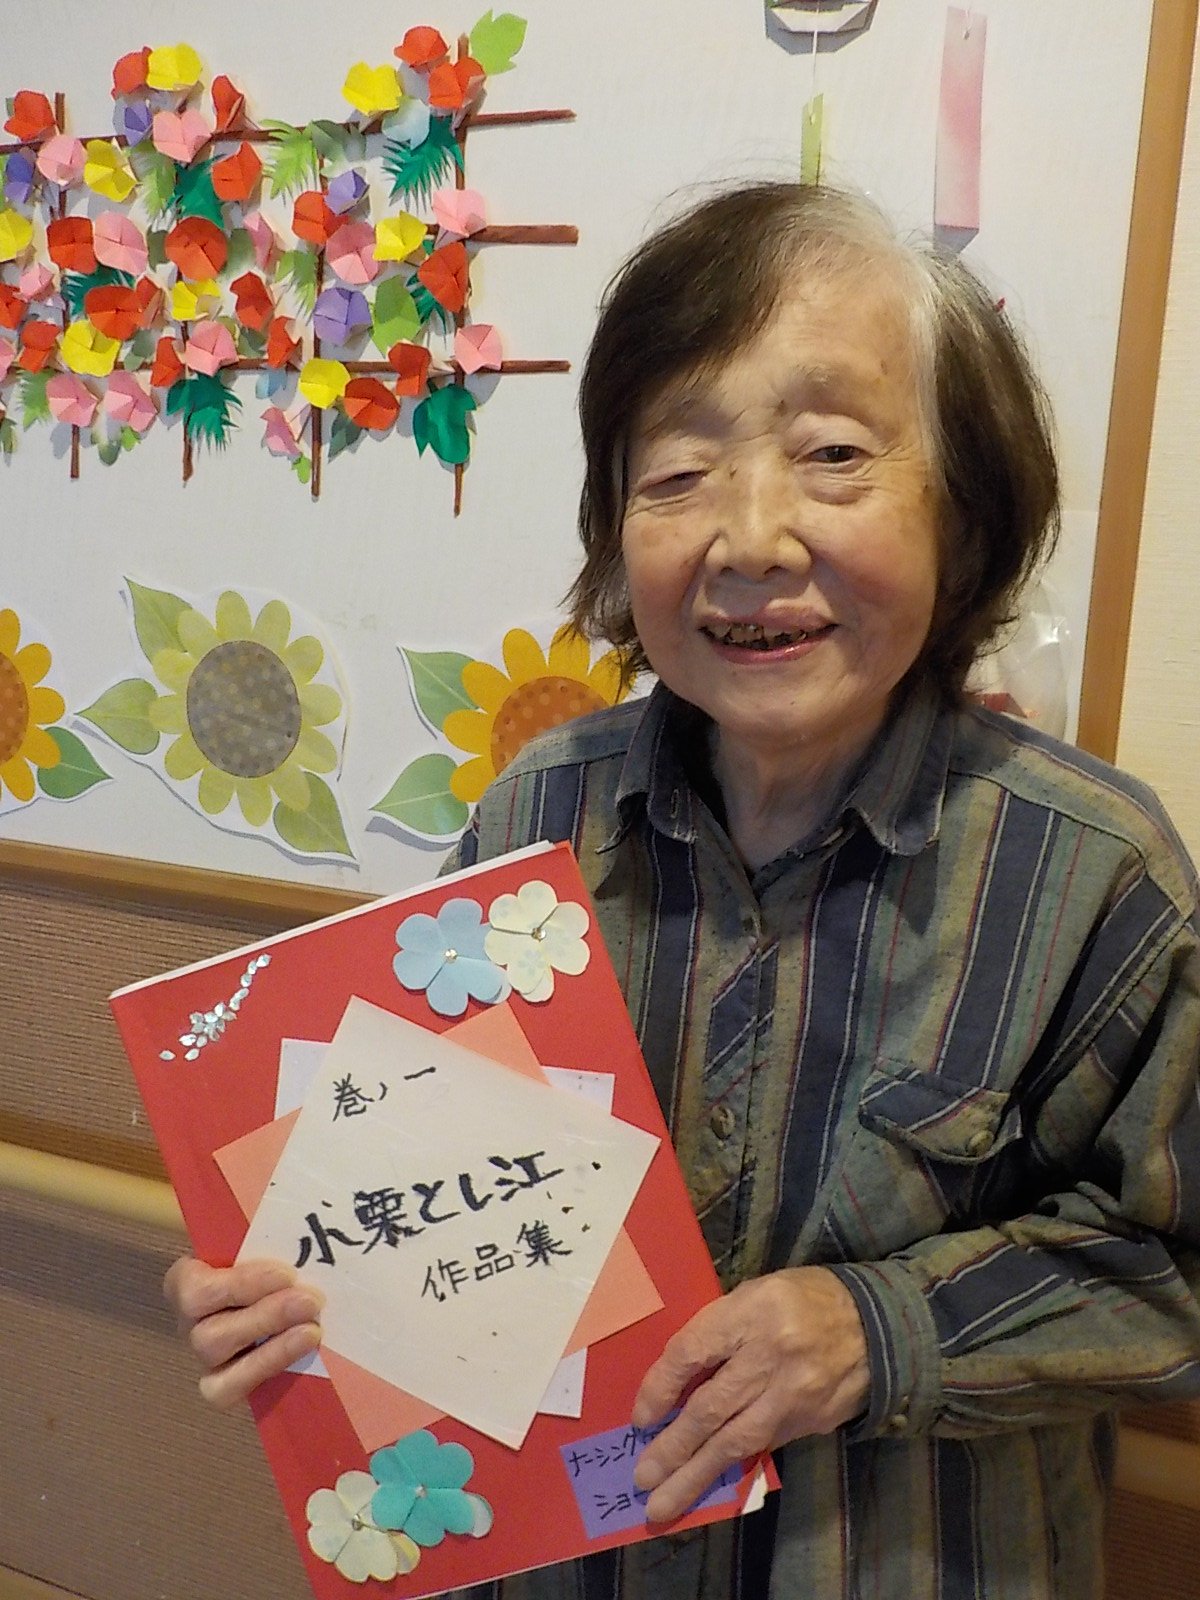 巻ノ一
小栗とし江
作品集
ナーシング
ショー